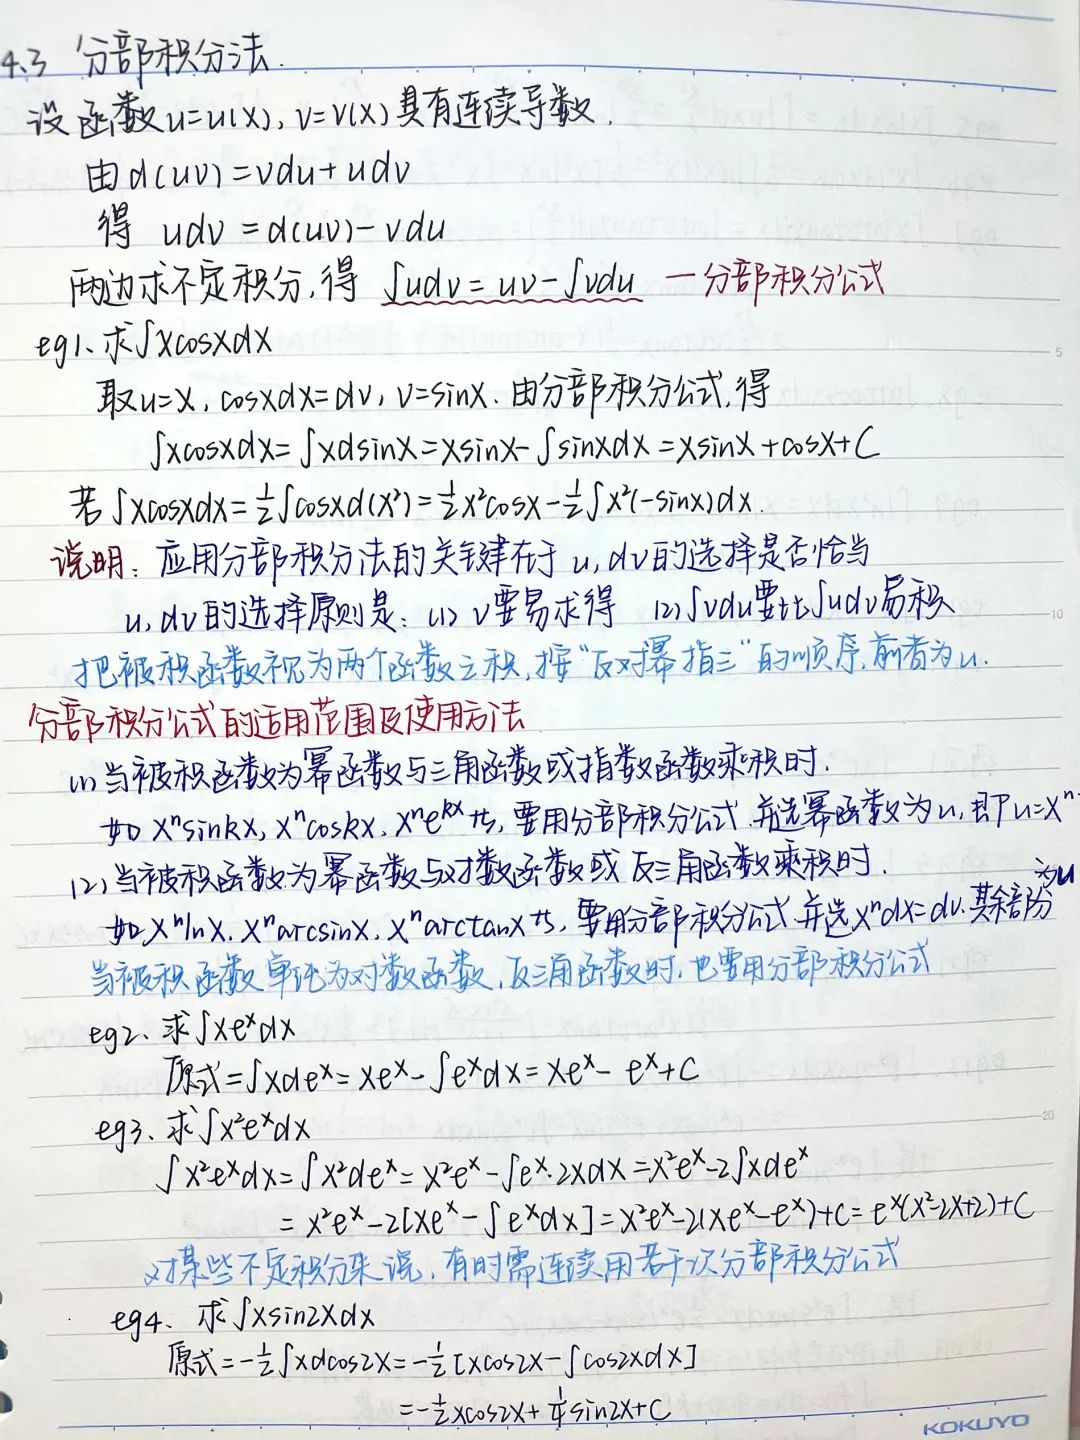 4.3 分部积分法.
设函数u=u(x), v=v(x)具有连续导数.
由d(uv)=vdu+udv
得 udv=d(uv)-vdu
两边求不定积分,得 ∫udv=uv-∫vdu —分部积分公式
eg1、求∫xcosxdx
取u=x, cosxdx=dv, v=sinx. 由分部积分公式,得
∫xcosxdx=∫xdsinx=xsinx-∫sinxdx=xsinx+cosx+C
若∫xcosxdx=½∫cosxd(x²)=½x²cosx-½∫x²(-sinx)dx.
说明: 应用分部积分法的关键在于 u, dv的选择是否恰当
u, dv的选择原则是: (1) v要易求得 (2)∫vdu要比∫udv易积
把被积函数视为两个函数之积,按“反对幂指三”的顺序,前者为u.
分部积分公式的适用范围及使用方法
(1)当被积函数为幂函数与三角函数或指数函数乘积时.
如 xⁿsinkx, xⁿcoskx, xⁿeᵏˣ 等, 要用分部积分公式.并选幂函数为u,即u=xⁿ
(2)当被积函数为幂函数与对数函数或反三角函数乘积时.
如xⁿlnx, xⁿarcsinx, xⁿarctanx等, 要用分部积分公式.并选xⁿdx=dv.其余部分为u
当被积函数单纯为对数函数,反三角函数时,也要用分部积分公式
eg2、求∫xeˣdx
原式=∫xdeˣ=xeˣ-∫eˣdx=xeˣ-eˣ+C
eg3、求∫x²eˣdx
∫x²eˣdx=∫x²deˣ=x²eˣ-∫eˣ·2xdx=x²eˣ-2∫xdeˣ
=x²eˣ-2[xeˣ-∫eˣdx]=x²eˣ-2(xeˣ-eˣ)+C=eˣ(x²-2x+2)+C
对某些不定积分来说,有时需连续用若干次分部积分公式
eg4、求∫xsin2xdx
原式=-½∫xdcos2x=-½[xcos2x-∫cos2xdx]
=-½xcos2x+¼sin2x+C
KOKUYO